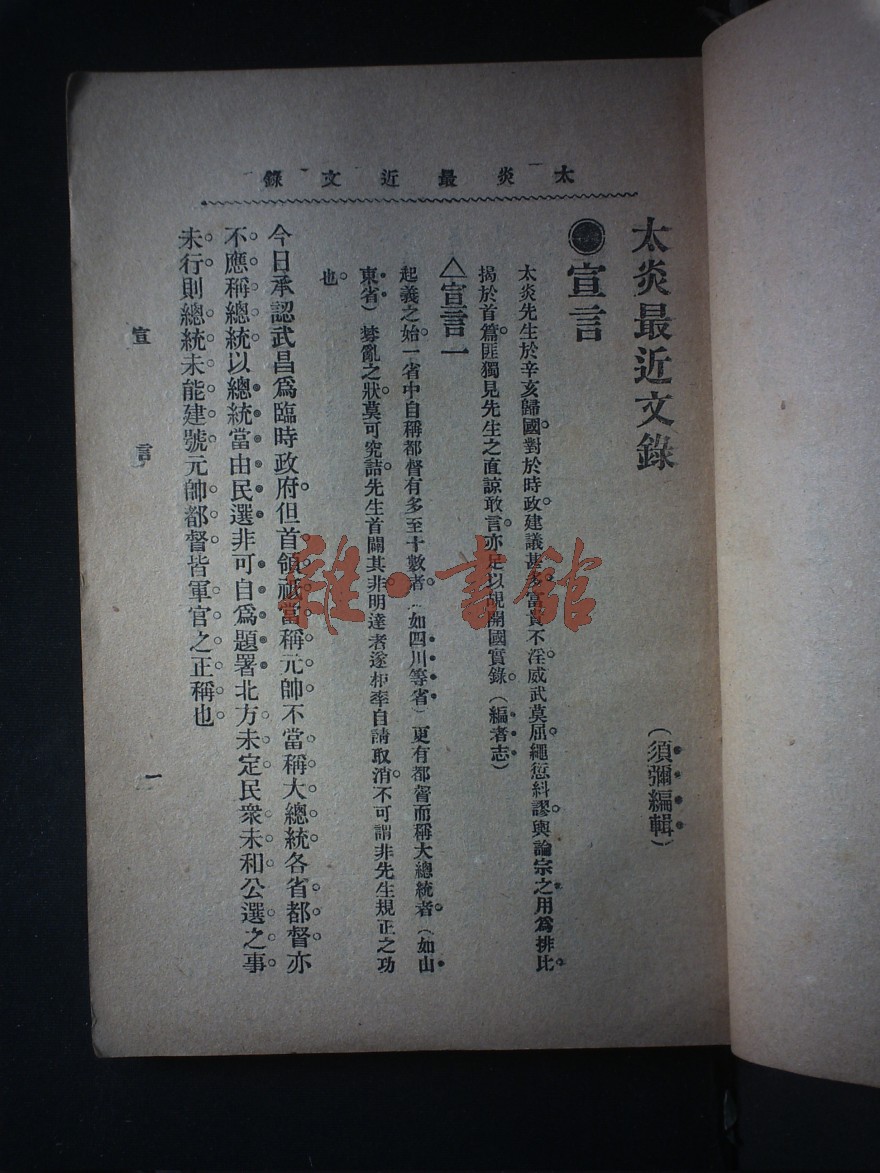 太炎最近文錄
太炎最近文錄
(須彌編輯)
宣言
太炎先生於辛亥歸國對於時政建議甚多富貴不淫威武莫屈繩愆糾謬輿論宗之用爲排比
揭於首篇匪獨見先生之直諒敢言亦足以覘開國實錄(編者志)
△宣言一
起義之始一省中自稱都督有多至十數者(如四川等省)更有都督而稱大總統者(如山
東省)棼亂之狀莫可究詰先生首闢其非明達者遂相率自請取消不可謂非先生規正之功
也
今日承認武昌爲臨時政府但首領祗當稱元帥不當稱大總統各省都督亦
不應稱總統以總統當由民選非可自爲題署北方未定民衆未和公選之事
未行則總統未能建號元帥都督皆軍官之正稱也
宣言
一
雜·書館